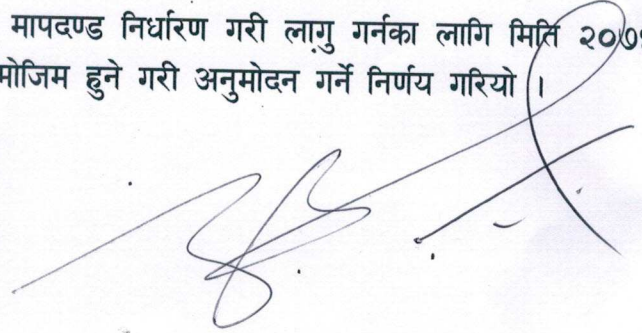 मापदण्ड निर्धारण गरी लागु गर्नका लागि मिति
हुने गरी अनुमोदन गर्ने निर्णय गरियो ।